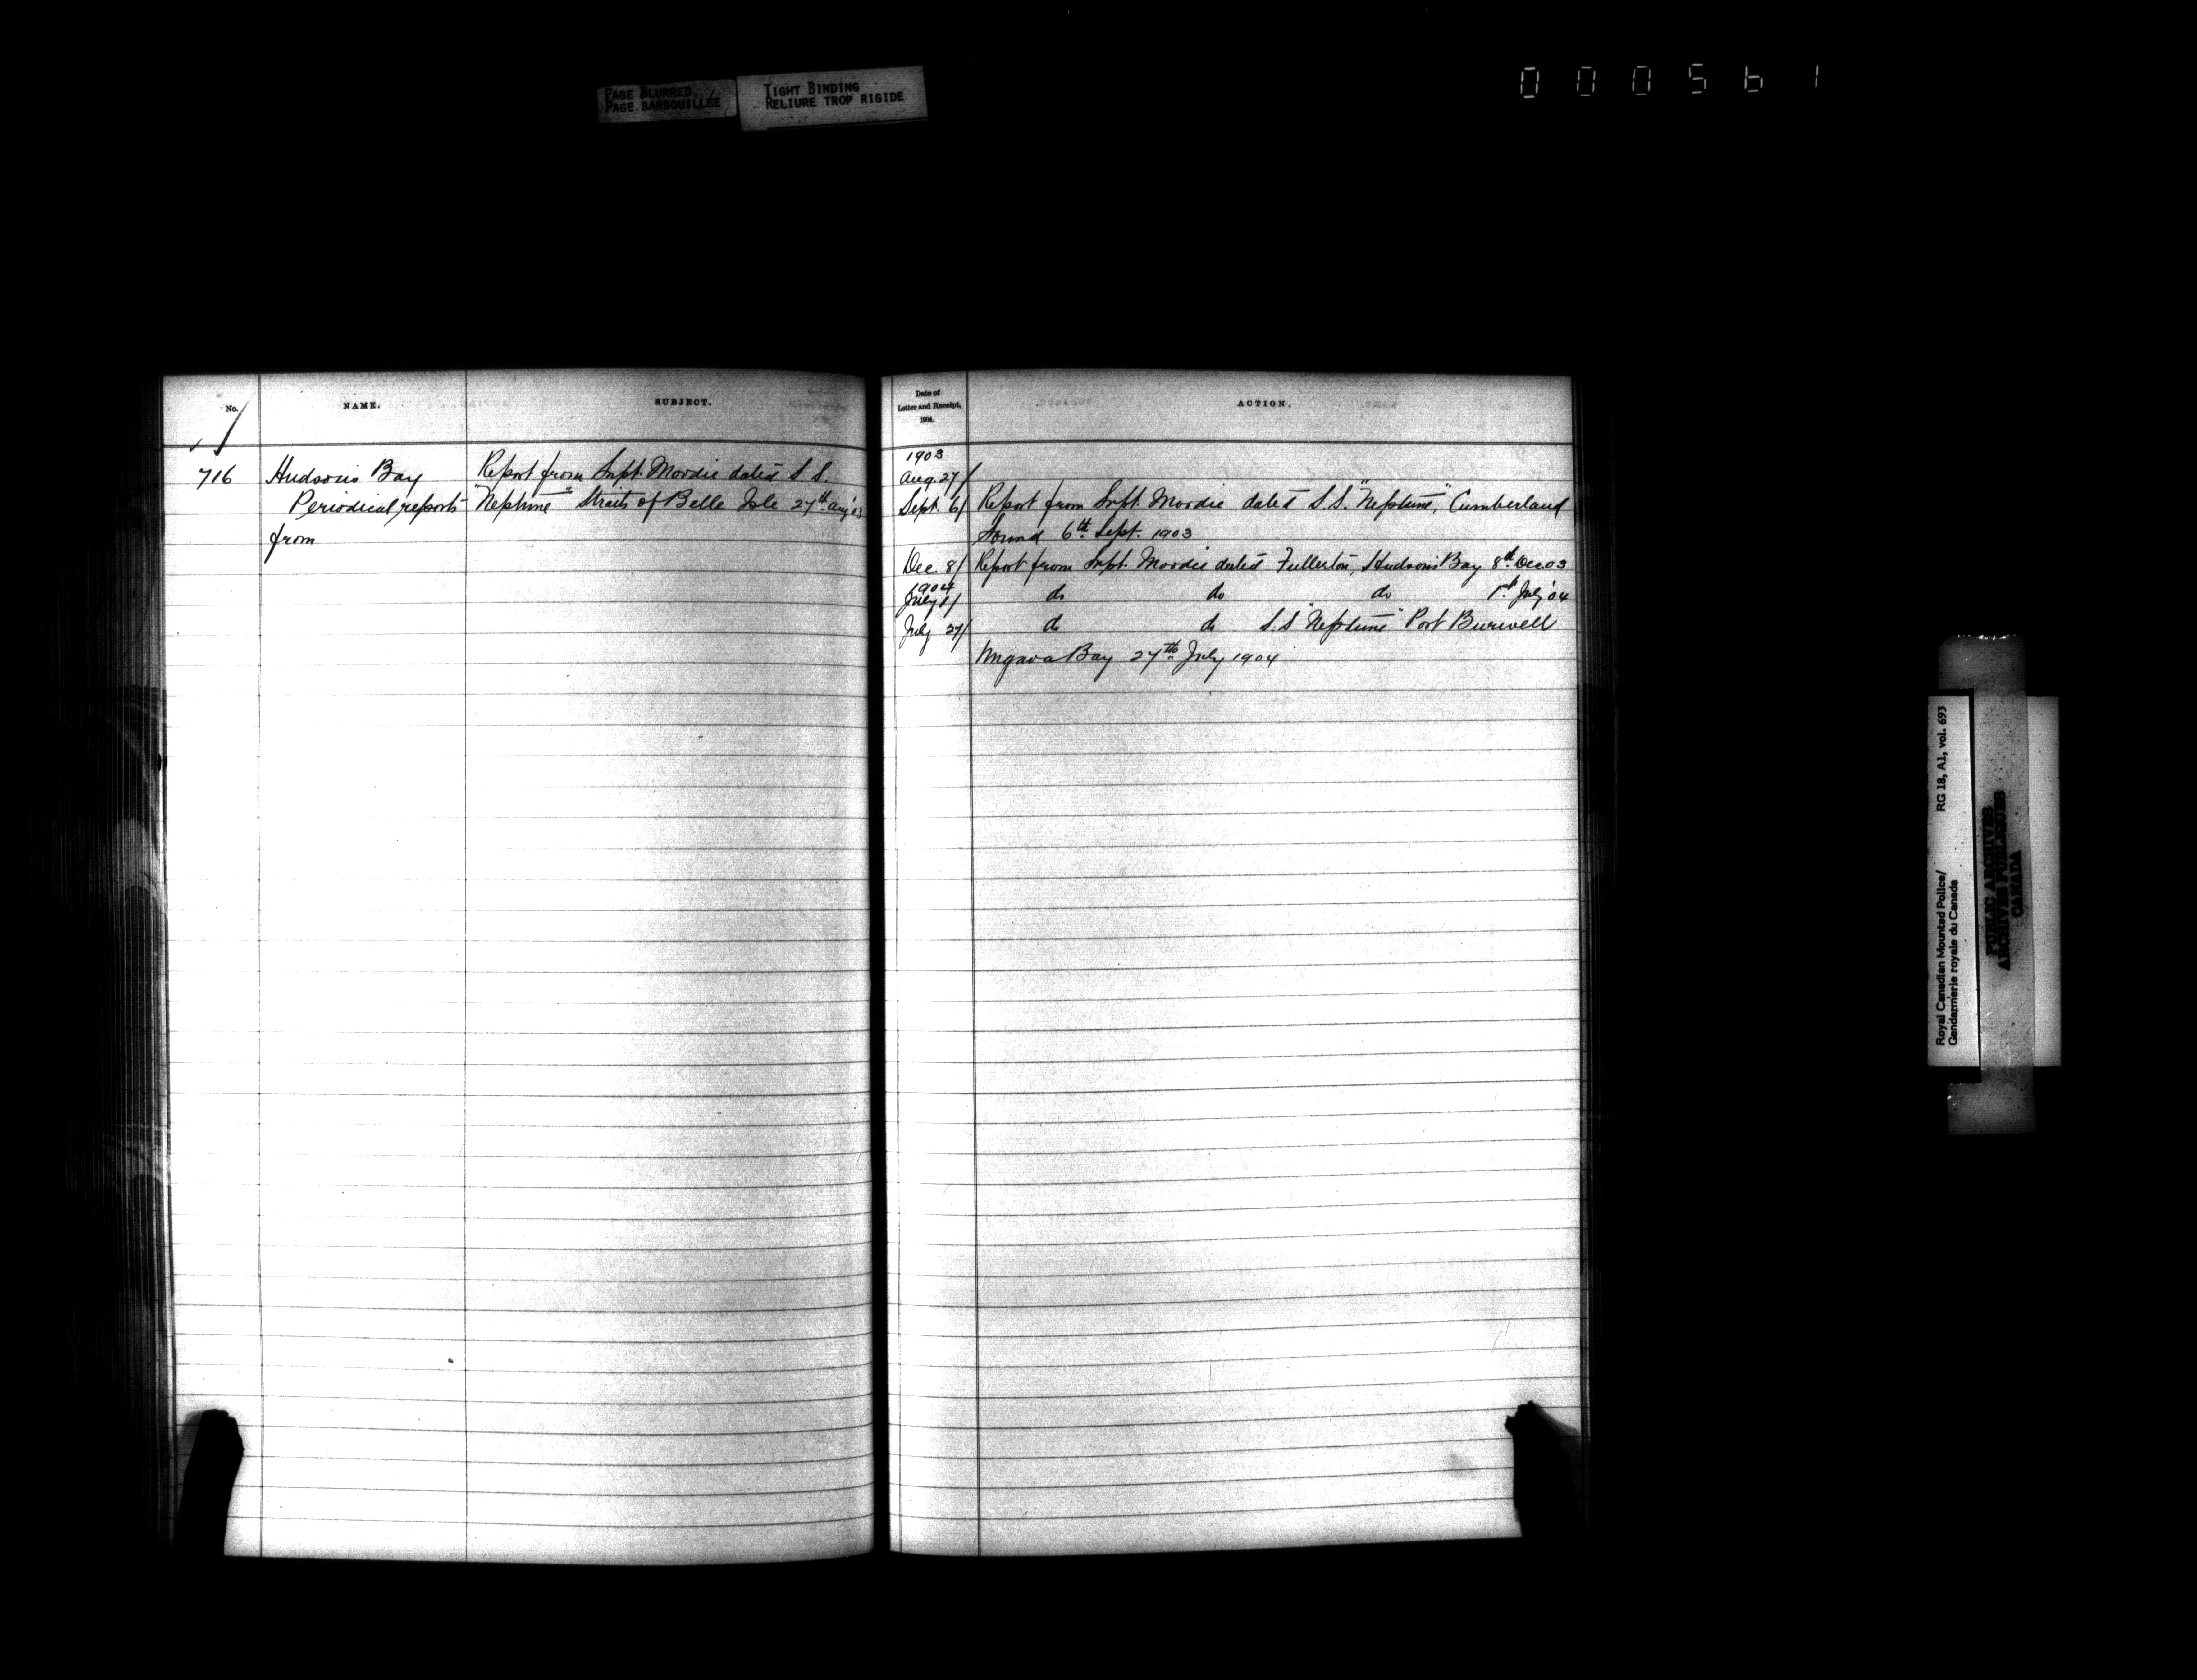 PAGE BLURRED
PAGE BARBOUILLÉE
TIGHT BINDING
RELIURE TROP RIGIDE
000561
No.
NAME.
SUBJECT.
716
Hudson's Bay
Periodical reports
from
Report from Supt. Moodie dated S.S.
"Neptune" Straits of Belle Isle 27th Aug '03
Date of
Letter and Receipt,
1904.
ACTION.
1903
Aug. 27/
Sept. 6/ Report from Supt. Moodie dated S.S. "Neptune", Cumberland
Sound 6th Sept. 1903
Dec. 8/ Report from Supt. Moodie dated Fullerton, Hudson's Bay 8th Dec 03
1904
July 1/ do do do 1st July '04
July 27/ do do S.S "Neptune" Port Burwell
Ungava Bay 27th July 1904
Royal Canadian Mounted Police/ RG 18, A1, vol. 693
Gendarmerie royale du Canada
PUBLIC ARCHIVES
ARCHIVES PUBLIQUES
CANADA